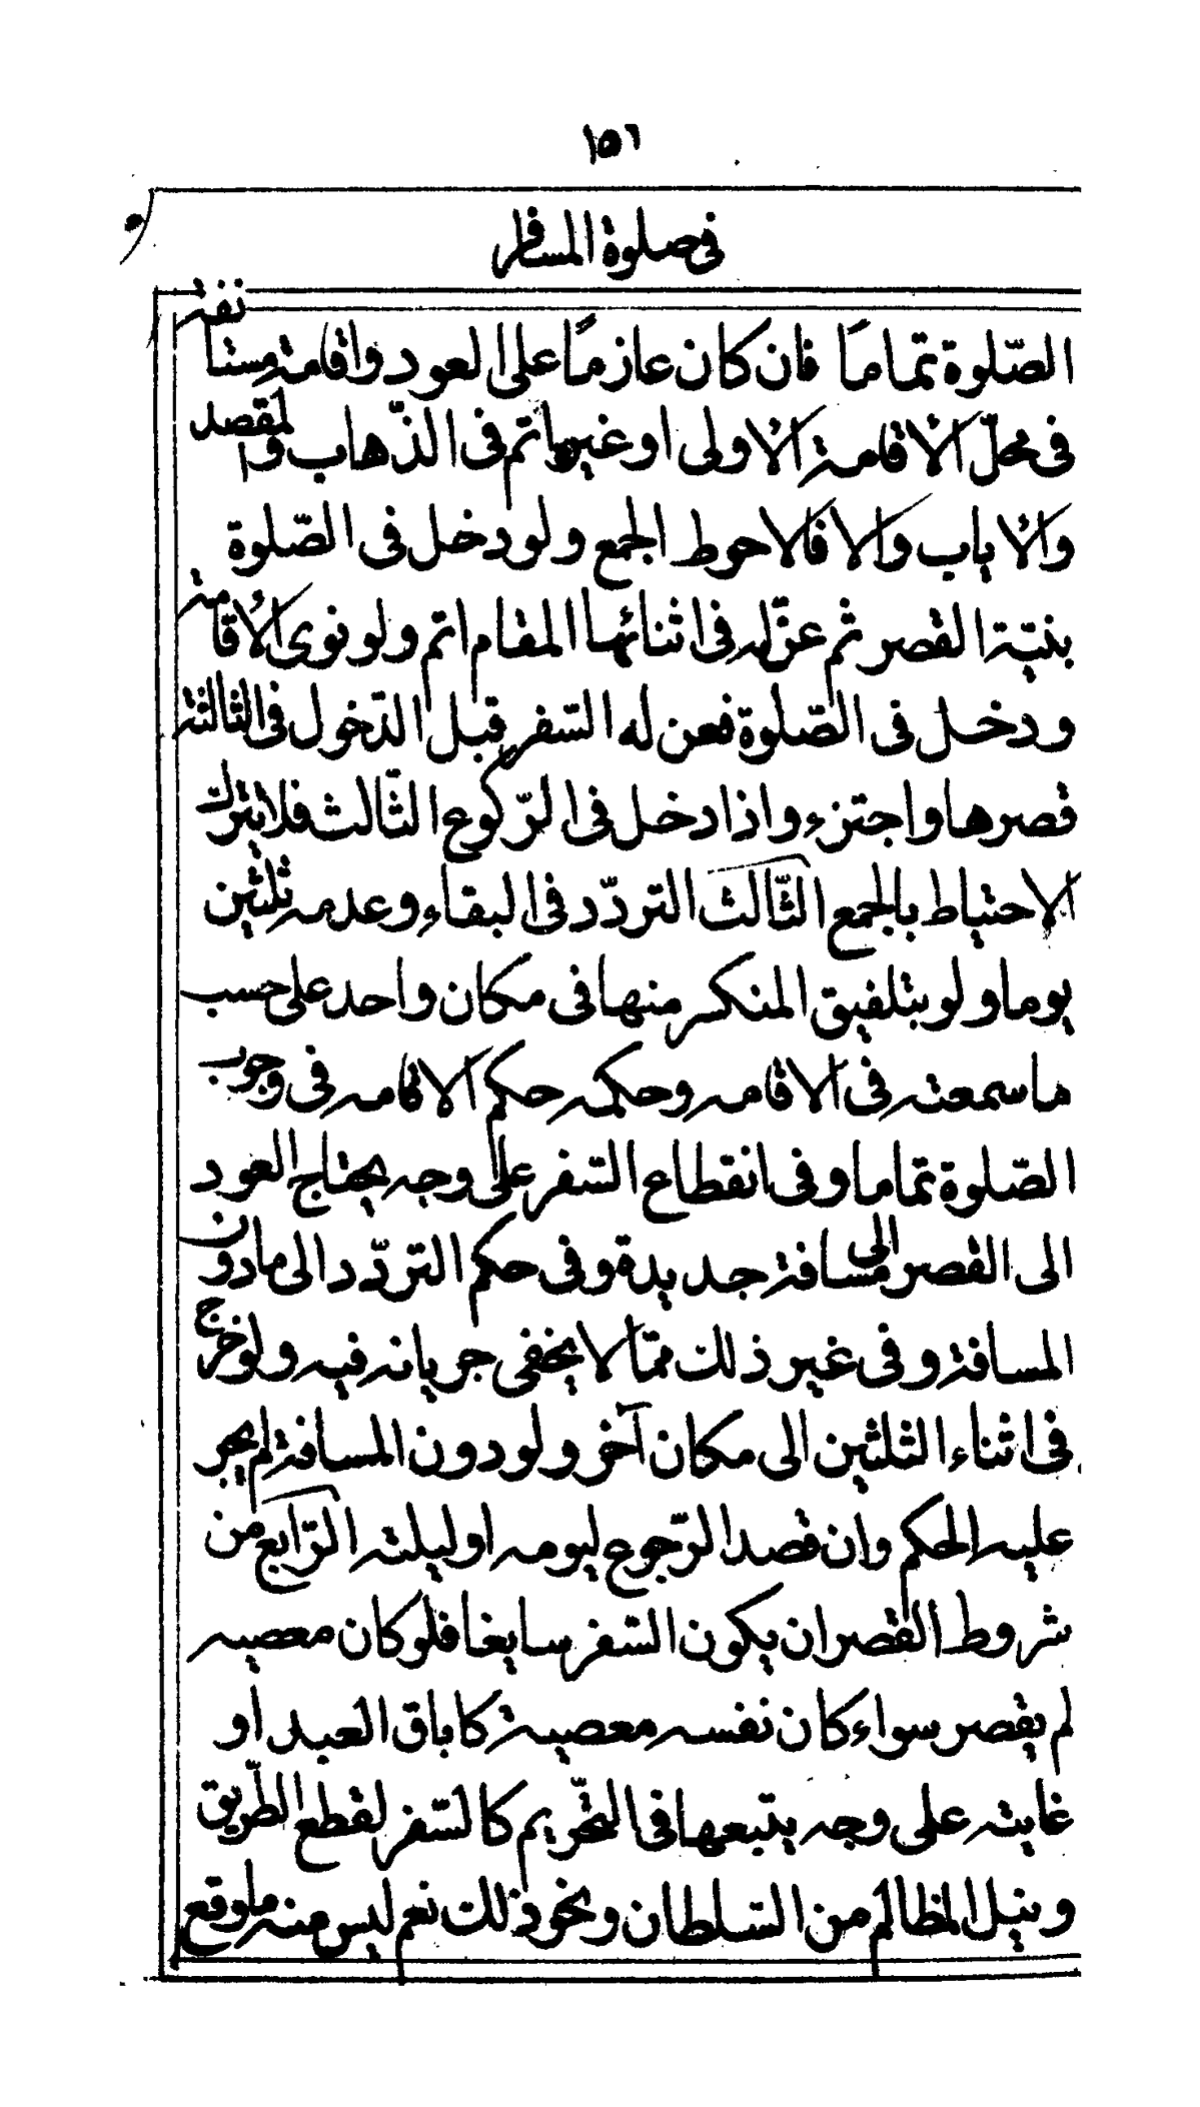 ١٥٦
فى صلوة المسافر
الصّلوة تماماً فان كان عازماً على العود واقامة مستانفة
فى محلّ الأقامة الأولى او غيرها تم فى الذّهاب والمقصد
والأياب والا فالاحوط الجمع ولو دخل فى الصّلوة
بنيّة القصر ثم عنّ له فى اثنائها المقام اتم ولو نوى الأقامة
ودخل فى الصّلوة فعن له السّفر قبل الدّخول فى الثالثة
قصرها واجتزء واذا دخل فى الرّكوع الثّالث فلا يترك
الاحتياط بالجمع الثّالث التردّد فى البقاء وعدمه ثلثين
يوما ولو بتلفيق المنكسر منها فى مكان واحد على حسب
ما سمعته فى الاقامه وحكمه حكم الاقامه فى وجوب
الصّلوة تماما وفى انقطاع السّفر على وجه يحتاج العود
الى القصر الى مسافة جديدة وفى حكم التردّد الى مادون
المسافة وفى غير ذلك ممّا لا يخفى جريانه فيه ولو خرج
فى اثناء الثلثين الى مكان آخر ولو دون المسافة لم يجر
عليه الحكم وان قصد الرّجوع ليومه او ليلته الرّابع من
شروط القصر ان يكون السّفر سايغا فلو كان معصيه
لم يقصر سواء كان نفسه معصية كاباق العبد او
غايته على وجه يتبعها فى التّحريم كالسّفر لقطع الطّريق
ونيل المظالم من السّلطان ونحو ذلك نعم ليس منه ما وقع